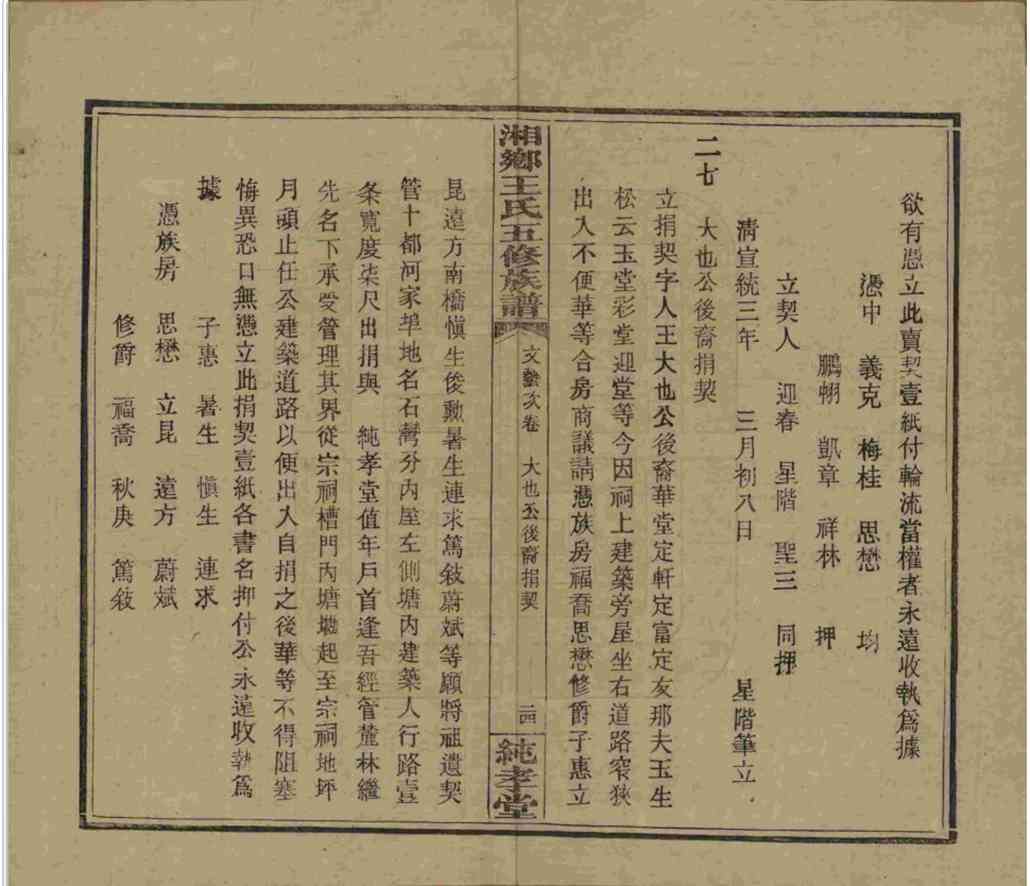 欲有憑立此賣契壹紙付輪流當權者永遠收執爲據
憑中　義克　梅桂　思懋　均
鵬翊　凱章　祥林　押
立契人　迎春　星階　聖三　同押
清宣統三年　三月初八日　星階筆立
二七　大也公後裔捐契
立捐契字人王大也公後裔華堂定軒定富定友那夫玉生
松云玉堂彩堂迎堂等今因祠上建築旁屋坐右道路窄狹
出入不便華等合房商議請憑族房福喬思懋修爵子惠立
湘鄉王氏五修族譜
文藝次卷　大也公後裔捐契
二四
純孝堂
昆遠方南橋愼生俊勳暑生連求篤敍蔚斌等願將祖遺契
管十都河家埠地名石灣分內屋左側塘內建築人行路壹
条寬度柒尺出捐與　純孝堂值年戶首逢吾經管麓林繼
先名下承受管理其界從宗祠槽門內塘磡起至宗祠地坪
月頭止任公建築道路以便出入自捐之後華等不得阻塞
悔異恐口無憑立此捐契壹紙各書名押付公永遠收執爲
據　子惠　暑生　愼生　連求
憑族房　思懋　立昆　遠方　蔚斌
修爵　福喬　秋庚　篤敍